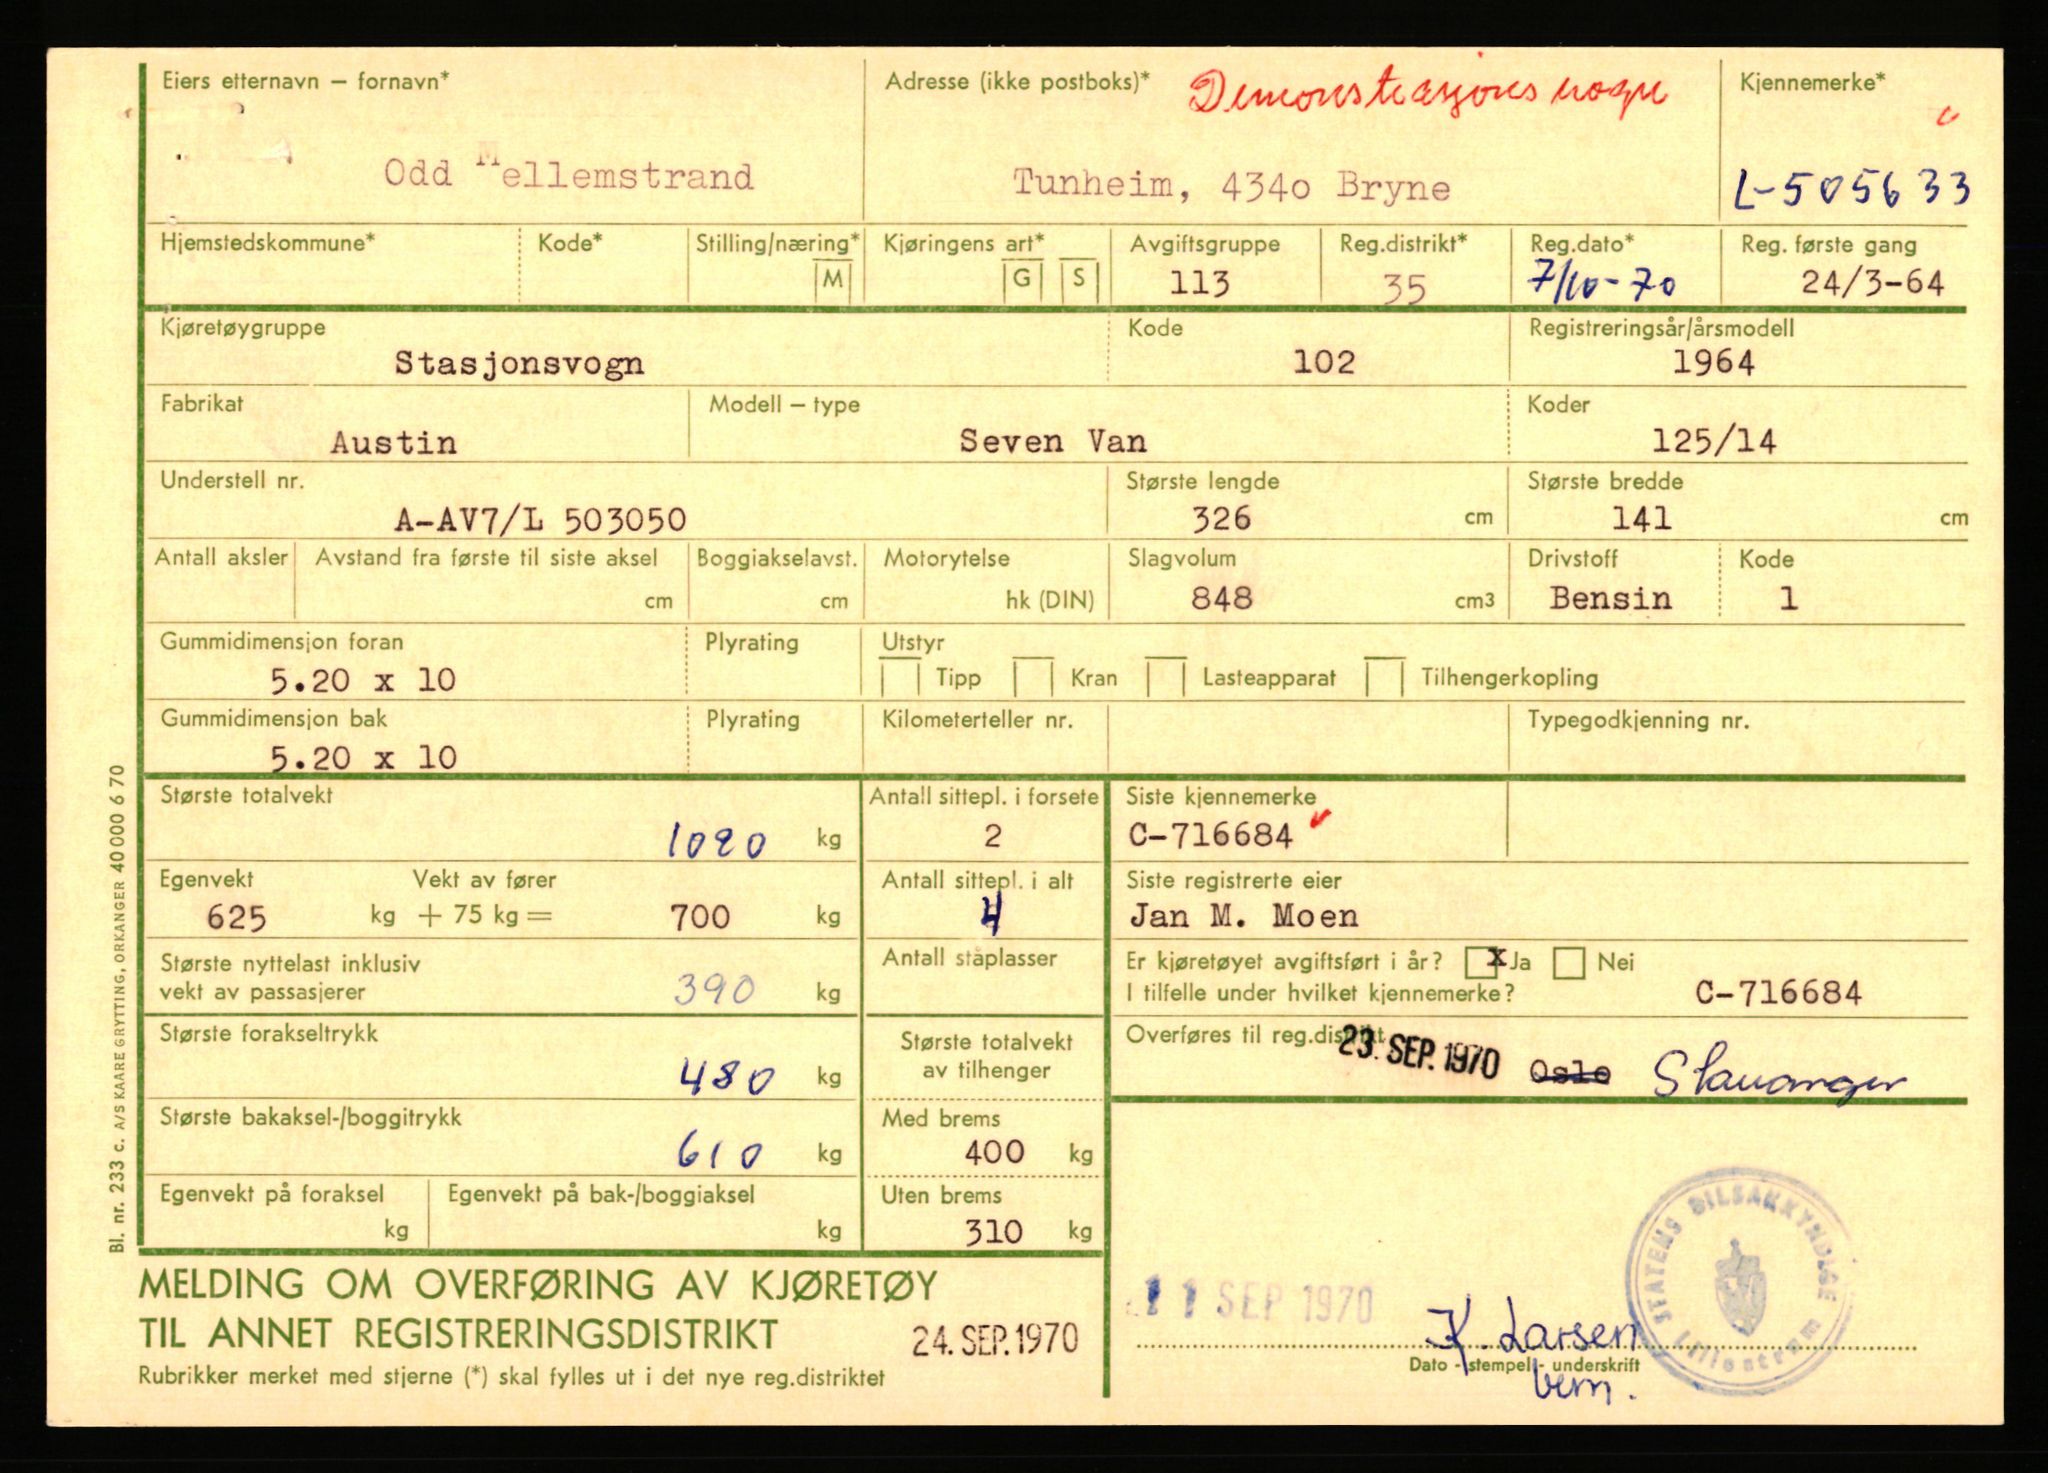 Eiers etternavn – fornavn* Adresse (ikke postboks)* Demonstrasjonsvogn Kjennemerke*
Odd Mellemstrand Tunheim, 434o Bryne L-505633
Hjemstedskommune* Kode* Stilling/næring* Kjøringens art* Avgiftsgruppe Reg.distrikt* Reg.dato* Reg. første gang
M G S 113 35 7/10-70 24/3-64
Kjøretøygruppe Kode Registreringsår/årsmodell
Stasjonsvogn 102 1964
Fabrikat Modell – type Koder
Austin Seven Van 125/14
Understell nr. Største lengde Største bredde
A-AV7/L 503050 326 cm 141 cm
Antall aksler Avstand fra første til siste aksel Boggiakselavst. Motorytelse Slagvolum Drivstoff Kode
cm cm hk (DIN) 848 cm3 Bensin 1
Gummidimensjon foran Plyrating Utstyr
5.20 x 10 Tipp Kran Lasteapparat Tilhengerkopling
Gummidimensjon bak Plyrating Kilometerteller nr. Typegodkjenning nr.
5.20 x 10
Største totalvekt Antall sittepl. i forsete Siste kjennemerke
1090 kg 2 C-716684
Egenvekt Vekt av fører Antall sittepl. i alt Siste registrerte eier
625 kg + 75 kg = 700 kg 4 Jan M. Moen
Største nyttelast inklusiv Antall ståplasser Er kjøretøyet avgiftsført i år? x Ja Nei
vekt av passasjerer 390 kg I tilfelle under hvilket kjennemerke? C-716684
Største forakseltrykk Største totalvekt Overføres til reg.distrikt
480 kg av tilhenger 23. SEP. 1970 Oslo Stavanger
Største bakaksel-/boggitrykk Med brems
610 kg 400 kg
Egenvekt på foraksel Egenvekt på bak-/boggiaksel Uten brems
kg kg 310 kg
MELDING OM OVERFØRING AV KJØRETØY
TIL ANNET REGISTRERINGSDISTRIKT 24. SEP. 1970
Rubrikker merket med stjerne (*) skal fylles ut i det nye reg.distriktet
11 SEP 1970 K. Larsen
Dato - stempel - underskrift
STATENS BILSAKKYNDIGE Lillestrøm
Bl. nr. 233 c. A/S KAARE GRYTTING, ORKANGER 40000 6 70